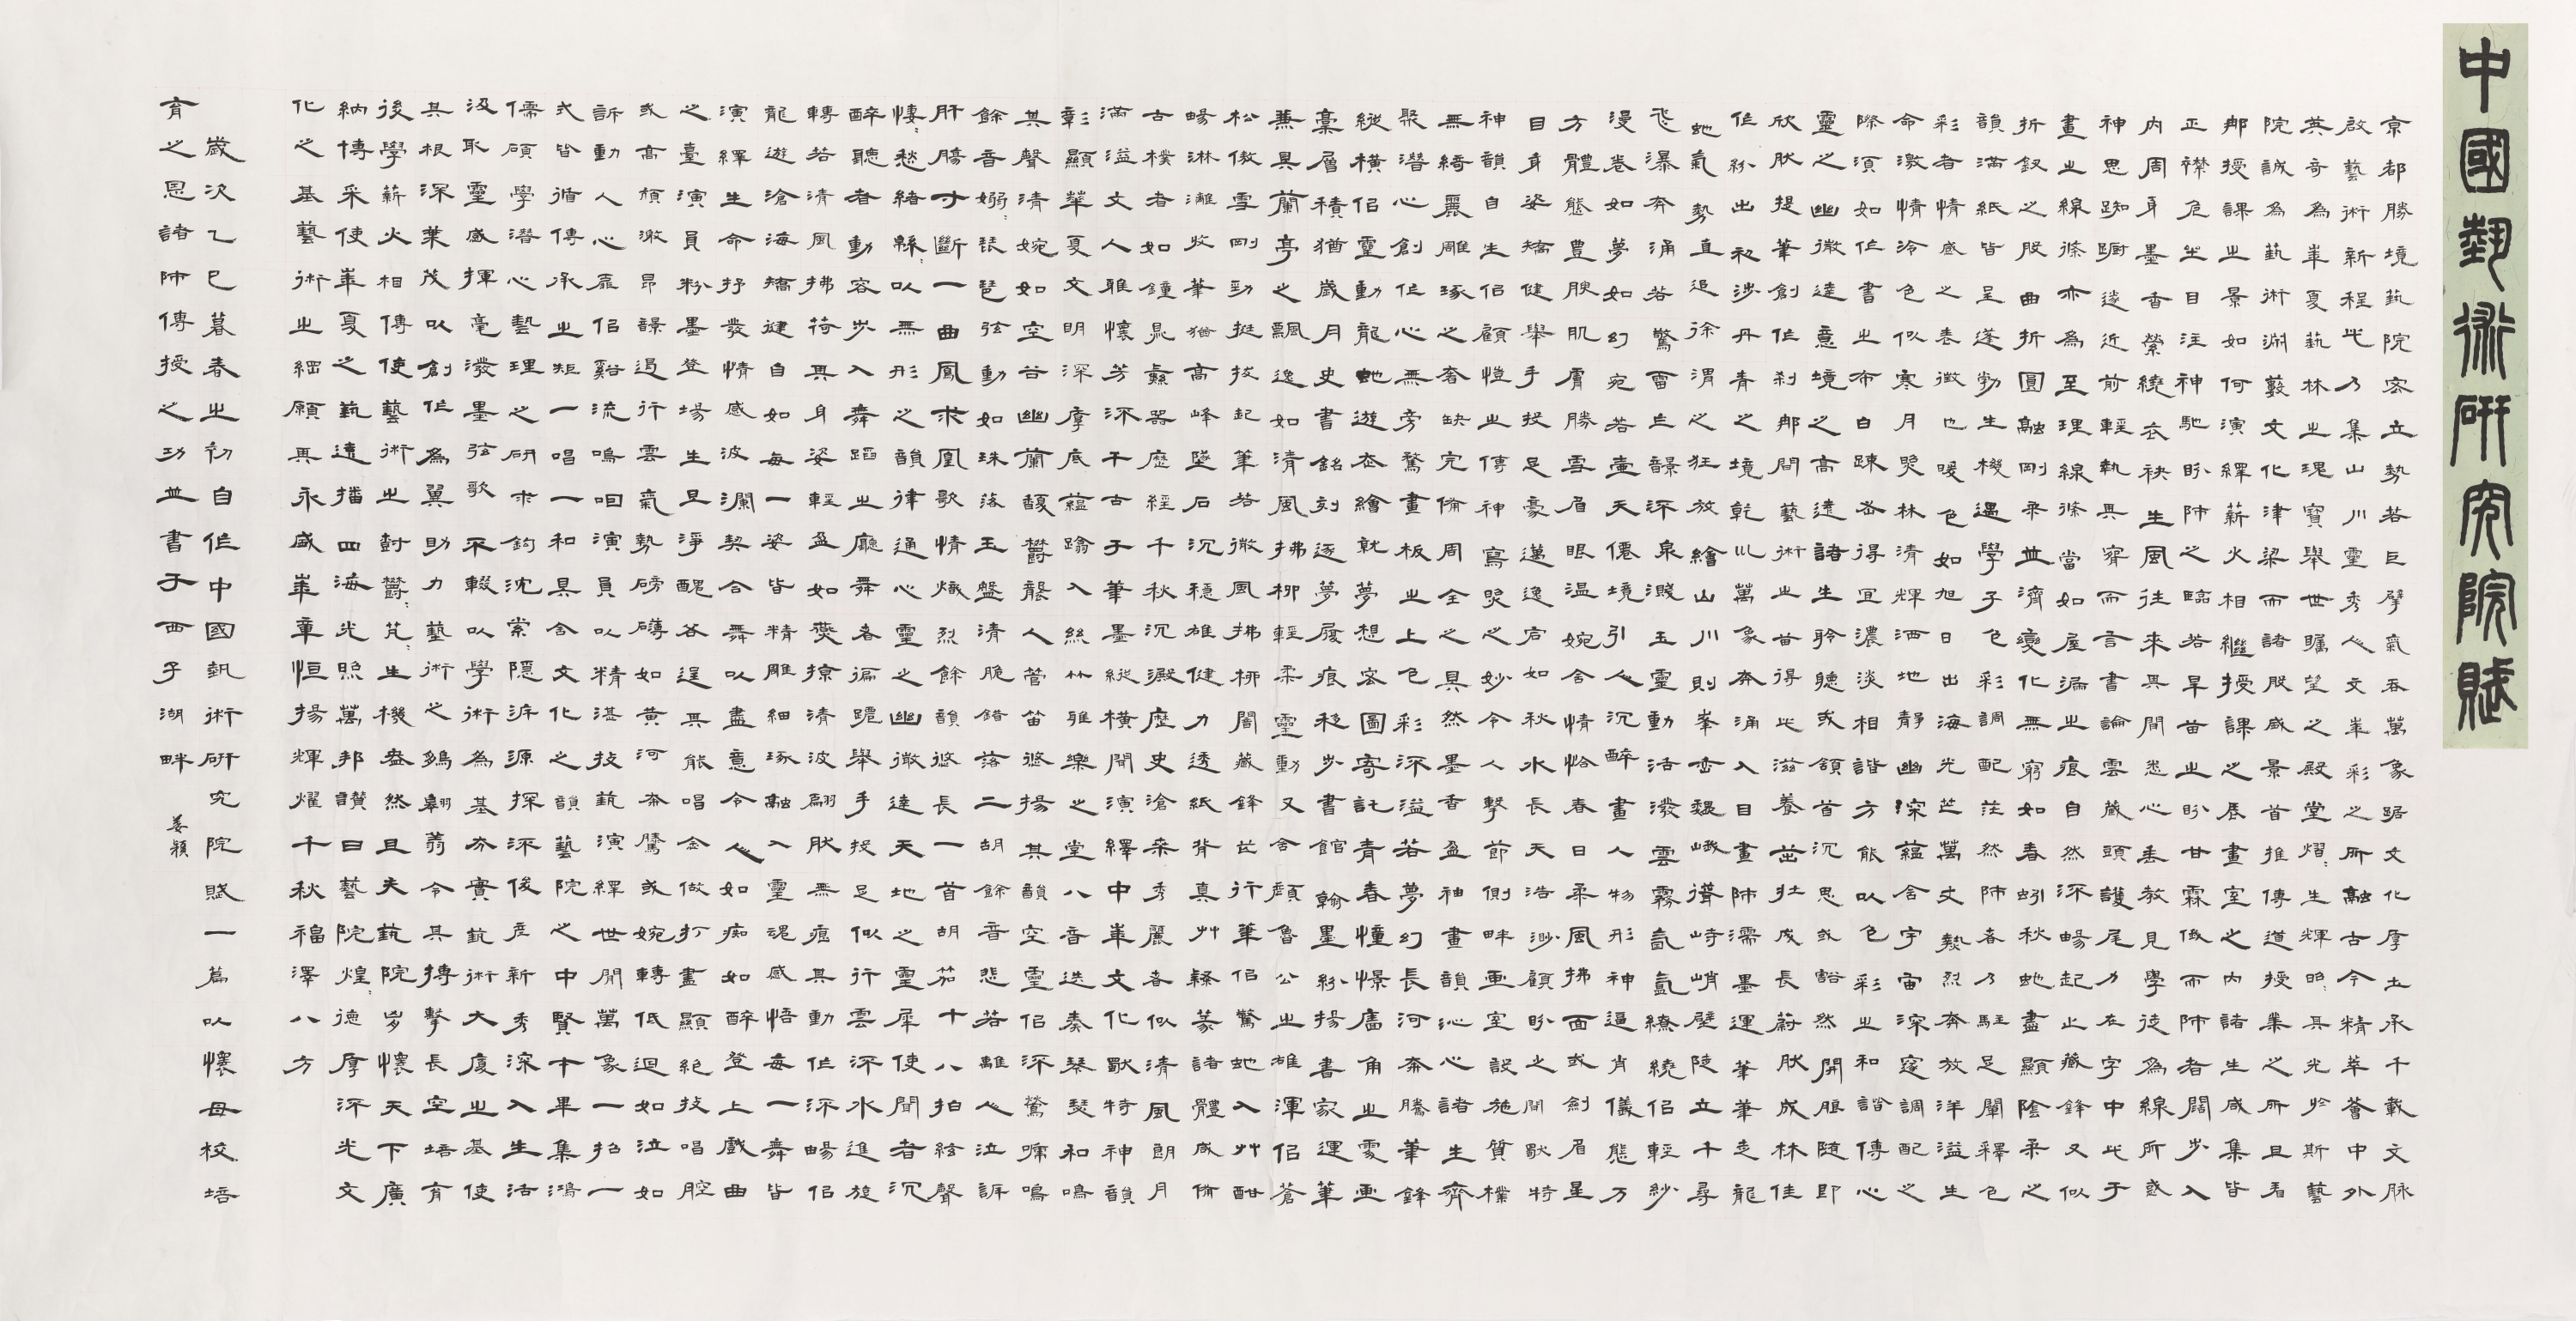 中國藝術研究院賦
京都勝境藝院峦立勢若巨擘氣吞萬象踞文化厚土承千載文脈
啟藝術新程此乃集山川靈秀人文華彩之所融古今精萃薈中外
英奇為華夏藝林之瑰寶舉世矚望之殿堂熠熠生輝昭昭其光於斯藝
院誠為藝術淵藪文化津梁而諸般盛景首推傳道授業之所且看
那授課之景如何演繹薪火相繼授課之居畫室之內諸生咸集皆
正襟危坐目注神馳盼師之臨若旱苗之盼甘霖俄而師者闊步入
內周身墨香縈繞衣袂生風往來其間悉心垂教見學徒為線所惑
神思踟躕遂近前輕執其腕而言書論雲藏頭護尾力在字中此于
畫之線條亦為至理線條當如屋漏之痕自然深暢起止藏鋒又似
折釵之股曲折圓融剛柔並濟變化無窮如春蚓秋虵盡顯陰柔之
韻滿紙皆呈蓬勃生機遇學子色彩調配茫然師者乃駐足闡釋色
彩者情感之表徵也暖色如旭日出海光芒萬丈熱烈奔放洋溢生
命激情冷色似寒月照林清輝洒地靜幽深蘊含宇宙深邃調配之
際須如作書之布白疎密得宜濃淡相諧方能以色彩之和諧傳心
靈之幽微達意境之高遠諸生聆聽或頷首沉思或豁然開朗隨即
欣然提筆創作剎那間藝術之苗得此滋養茁壯成長蔚然成林佳
作紛出初涉丹青之境乾坤萬象奔入目畫師濡墨運筆筆走龍
虵氣勢直追徐渭之狂放繪山川則峯巒巍峨聳峙峭壁陡立千尋
飛瀑奔涌若驚雷巨響深泉濺玉靈動活潑雲霧氤氳繚繞侶輕紗
漫卷如夢如幻宛若壺天僊境引人沉醉畫人物形神逼肖儀態万
方體態豊腴肌膚勝雪眉眼温婉含情恰春日柔風拂面或劍眉星
目身姿矯健舉手投足豪邁逸宕如秋水長天浩渺顧盼之間獸特
神韻自生侶顧愷之傳神寫照之妙令人擊節側畔畫室設施質樸
無綺麗雕琢之奢缺完備周全之具然墨香盈袖畫韻沁心諸生齊
聚潛心創作心無旁騖畫板之上色彩深溢若夢幻長河奔騰筆鋒
縱橫侶靈動龍虵遊繪就夢想宏圖寄託青春憧憬畫角之處畫
稾層積猶歲月史書銘刻逐夢履痕移步書館翰墨紛揚書家運筆
兼具蘭亭之飄逸如清風拂柳輕柔靈動又含顏魯公之雄渾侶蒼
松傲雪剛勁挺拔起筆若微風拂柳闇藏鋒芒行筆侶驚虵入艸酣
暢淋灕收筆猶高峰墜石沉穩雄健力透紙背真艸隸篆諸體咸備
古樸者如鐘鼎彝器歷經千秋沉澱歷史滄桑秀麗者似清風朗月
滿溢文人雅懷芳深千古于筆墨縱橫間演繹中華文化獸特神韻
彰顯華夏文明深厚底蘊踰入絲竹雅樂之堂八音迭奏琴瑟和鳴
其聲清婉如空谷幽蘭馥鬱襲人管笛悠揚其韻空靈侶深鶯啼鳴
餘音嫋嫋琵琶弦動如珠落玉盤清脆錯落二胡餘音悲若離人泣訴
肝腸寸斷一曲鳳求凰歌情熾烈餘韻悠長一首胡笳十八拍絃聲
悽悽愁緒緜緜以無形之韻律通心靈之幽微達天地之靈犀使聞者沉
醉聽者動容步入舞蹈之廳舞者徧躚舉手投足似行雲深水進旋
轉若清風拂荷其身姿輕盈如燕掠清波翩然無痕其動作深暢侶
龍遊滄海矯健自如每一姿皆精雕細琢融入靈魂感悟每一舞皆
演繹生命抒發情感波瀾契合舞以盡意令人如痴如醉登上戲曲
之臺演員粉墨登場生旦淨醜各逞其能唱念做打盡顯絕技唱腔
或高頏激昂韻遏行雲氣勢磅礴如黃河奔騰或婉轉低迴如泣如
訴動人心扉侶谿流鳴咽演員以精湛技藝演繹世間萬象一招一
式皆循傳承之矩一唱一和具含文化之韻藝院之中賢才畢集鴻
儒碩學潛心藝理之研求鈎沈索隱泝源探深後產新秀深入生活
汲取靈感揮毫潑墨弦歌不輟以學術為基夯實藝術大廈之基使
其根深葉茂以創作為翼助力藝術之鵷翱翥令其摶擊長空培育
後學薪火相傳使藝術之樹鬱鬱芃芃生機盎然且夫藝院懷天下廣
納博采使華夏之藝遠播四海光照萬邦讚曰藝院煌煌德厚深光文
化之基藝術之綱願其永盛華章恒揚輝耀千秋福澤八方
歲次乙巳暮春之初自作中國藝術研究院賦一篇以懷母校培
育之恩諸師傳授之功並書于西子湖畔 姜穎